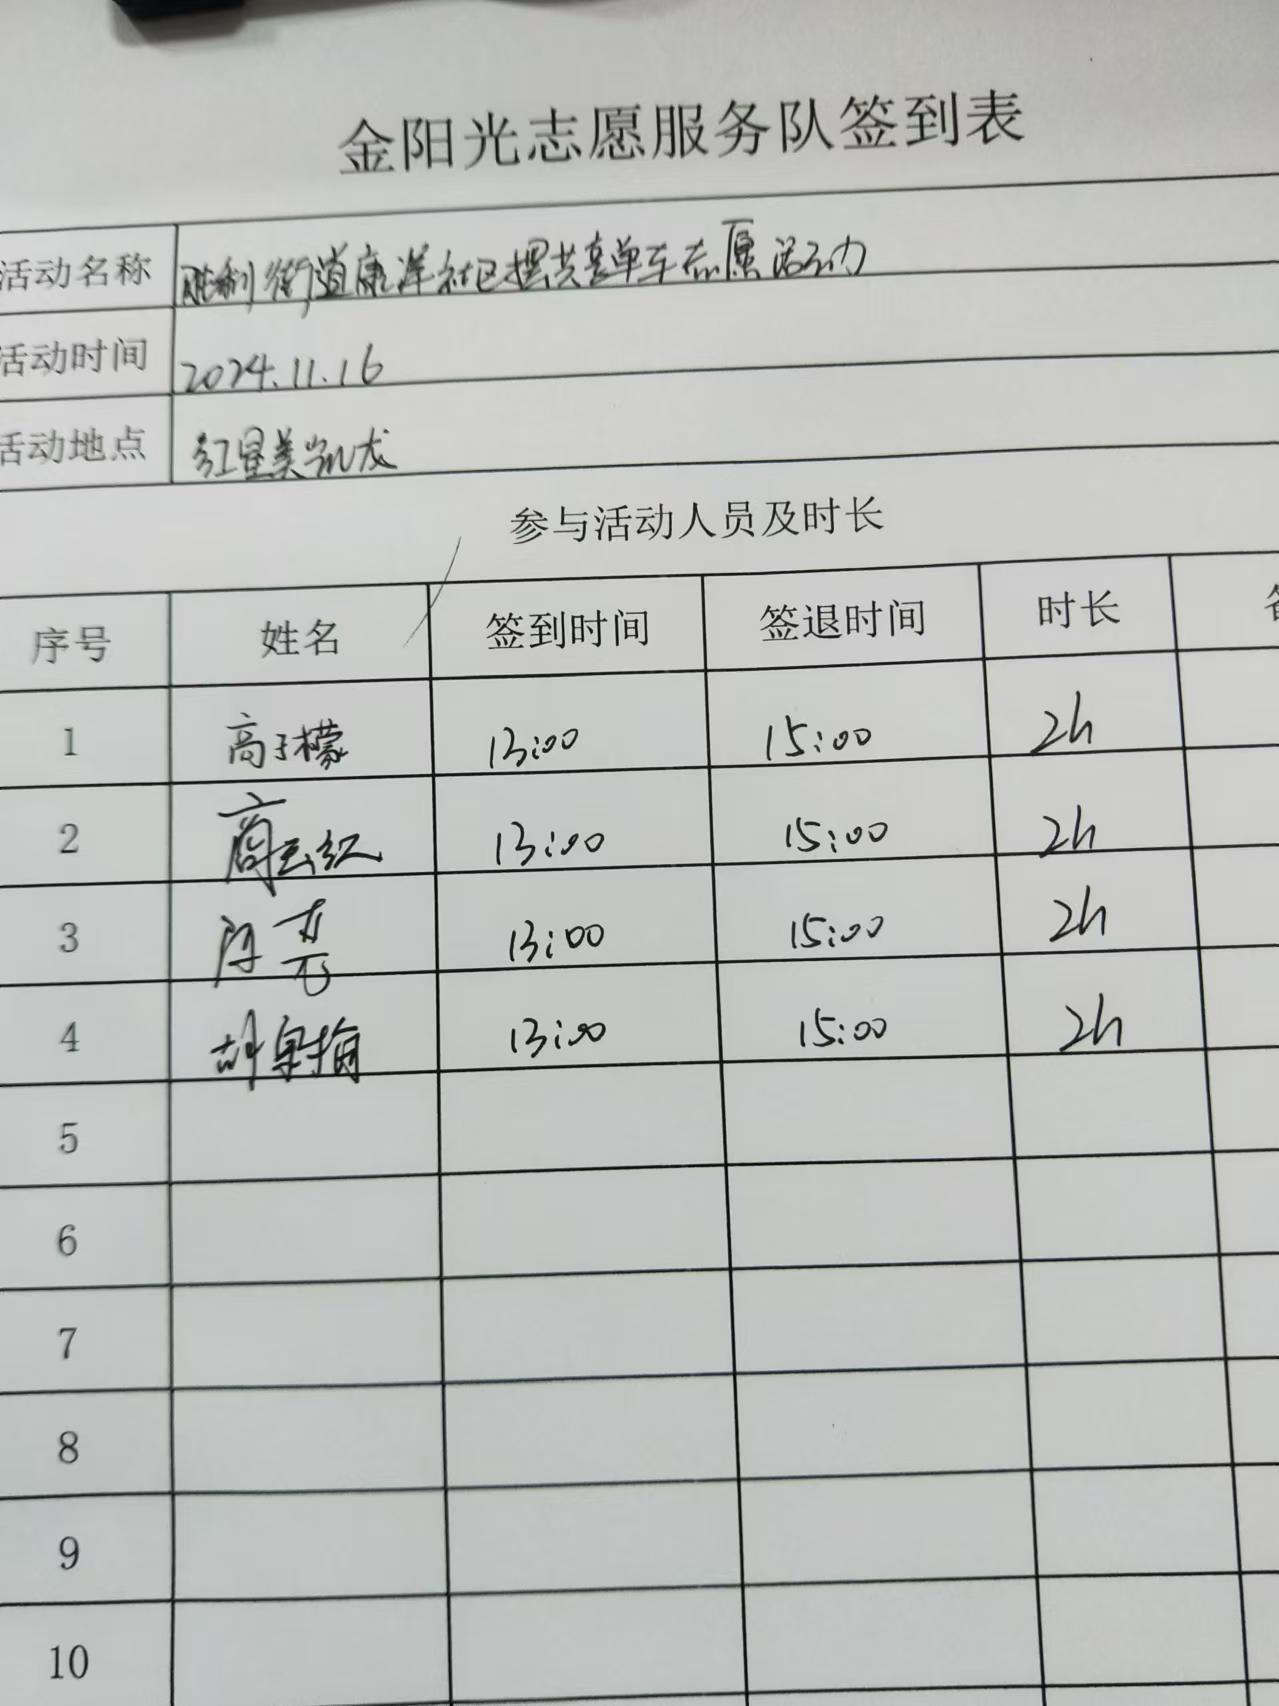 金阳光志愿服务队签到表
活动名称 胜利街道康洋社区摆共享单车志愿活动
活动时间 2024.11.16
活动地点 红星美凯龙
参与活动人员及时长
序号 姓名 签到时间 签退时间 时长
1 高子檬 13:00 15:00 2h
2 13:00 15:00 2h
3 13:00 15:00 2h
4 胡 13:00 15:00 2h
5
6
7
8
9
10